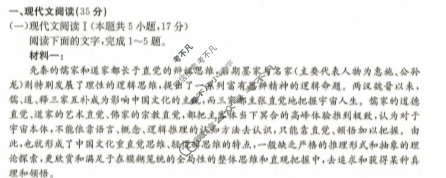 一、现代文阅读(35分)
(一)现代文阅读Ⅰ(本题共5小题,17分)
阅读下面的文字,完成1~5题。
材料一:
先秦的儒家和道家都长于直觉的辩证思维,后期墨家与名家(主要代表人物为惠施、公孙
龙)则特别发展了理性的逻辑思维,提出了一系列富有思辨精神的逻辑命题。两汉魏晋以来,
儒、道、释三家互补成为影响中国文化的主流,而三家都主张直觉地把握宇宙人生。儒家的道德
直觉、道家的艺术直觉、佛家的宗教直觉,都把主客体当下冥合的高峰体验推到极致,认为对于
宇宙本体,不能依靠语言、概念、逻辑推理的认知方法去认识,只能靠直觉、顿悟加以把握。由
此,也就形成了中国文化重直觉思维、轻逻辑思维的特点,一般缺乏严格的推理形式和抽象的理
论探索,更欣赏和满足于在模糊笼统的全局性的整体思维和直观把握中,去追求和获得某种真
理和领悟。